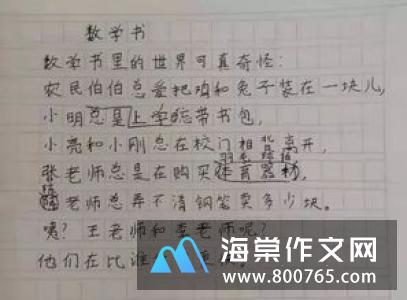 数学书
数学书里的世界可真奇怪:
农民伯伯总爱把鸡和兔子装在一块儿,
小明总是上学忘带书包,
小亮和小刚总在校门相背离开,
张老师总是在购买体育器材,
老师总弄不清钢笔卖多少块。
咦?王老师和李老师呢?
他们在比谁
海棠作文网
www.800765.com